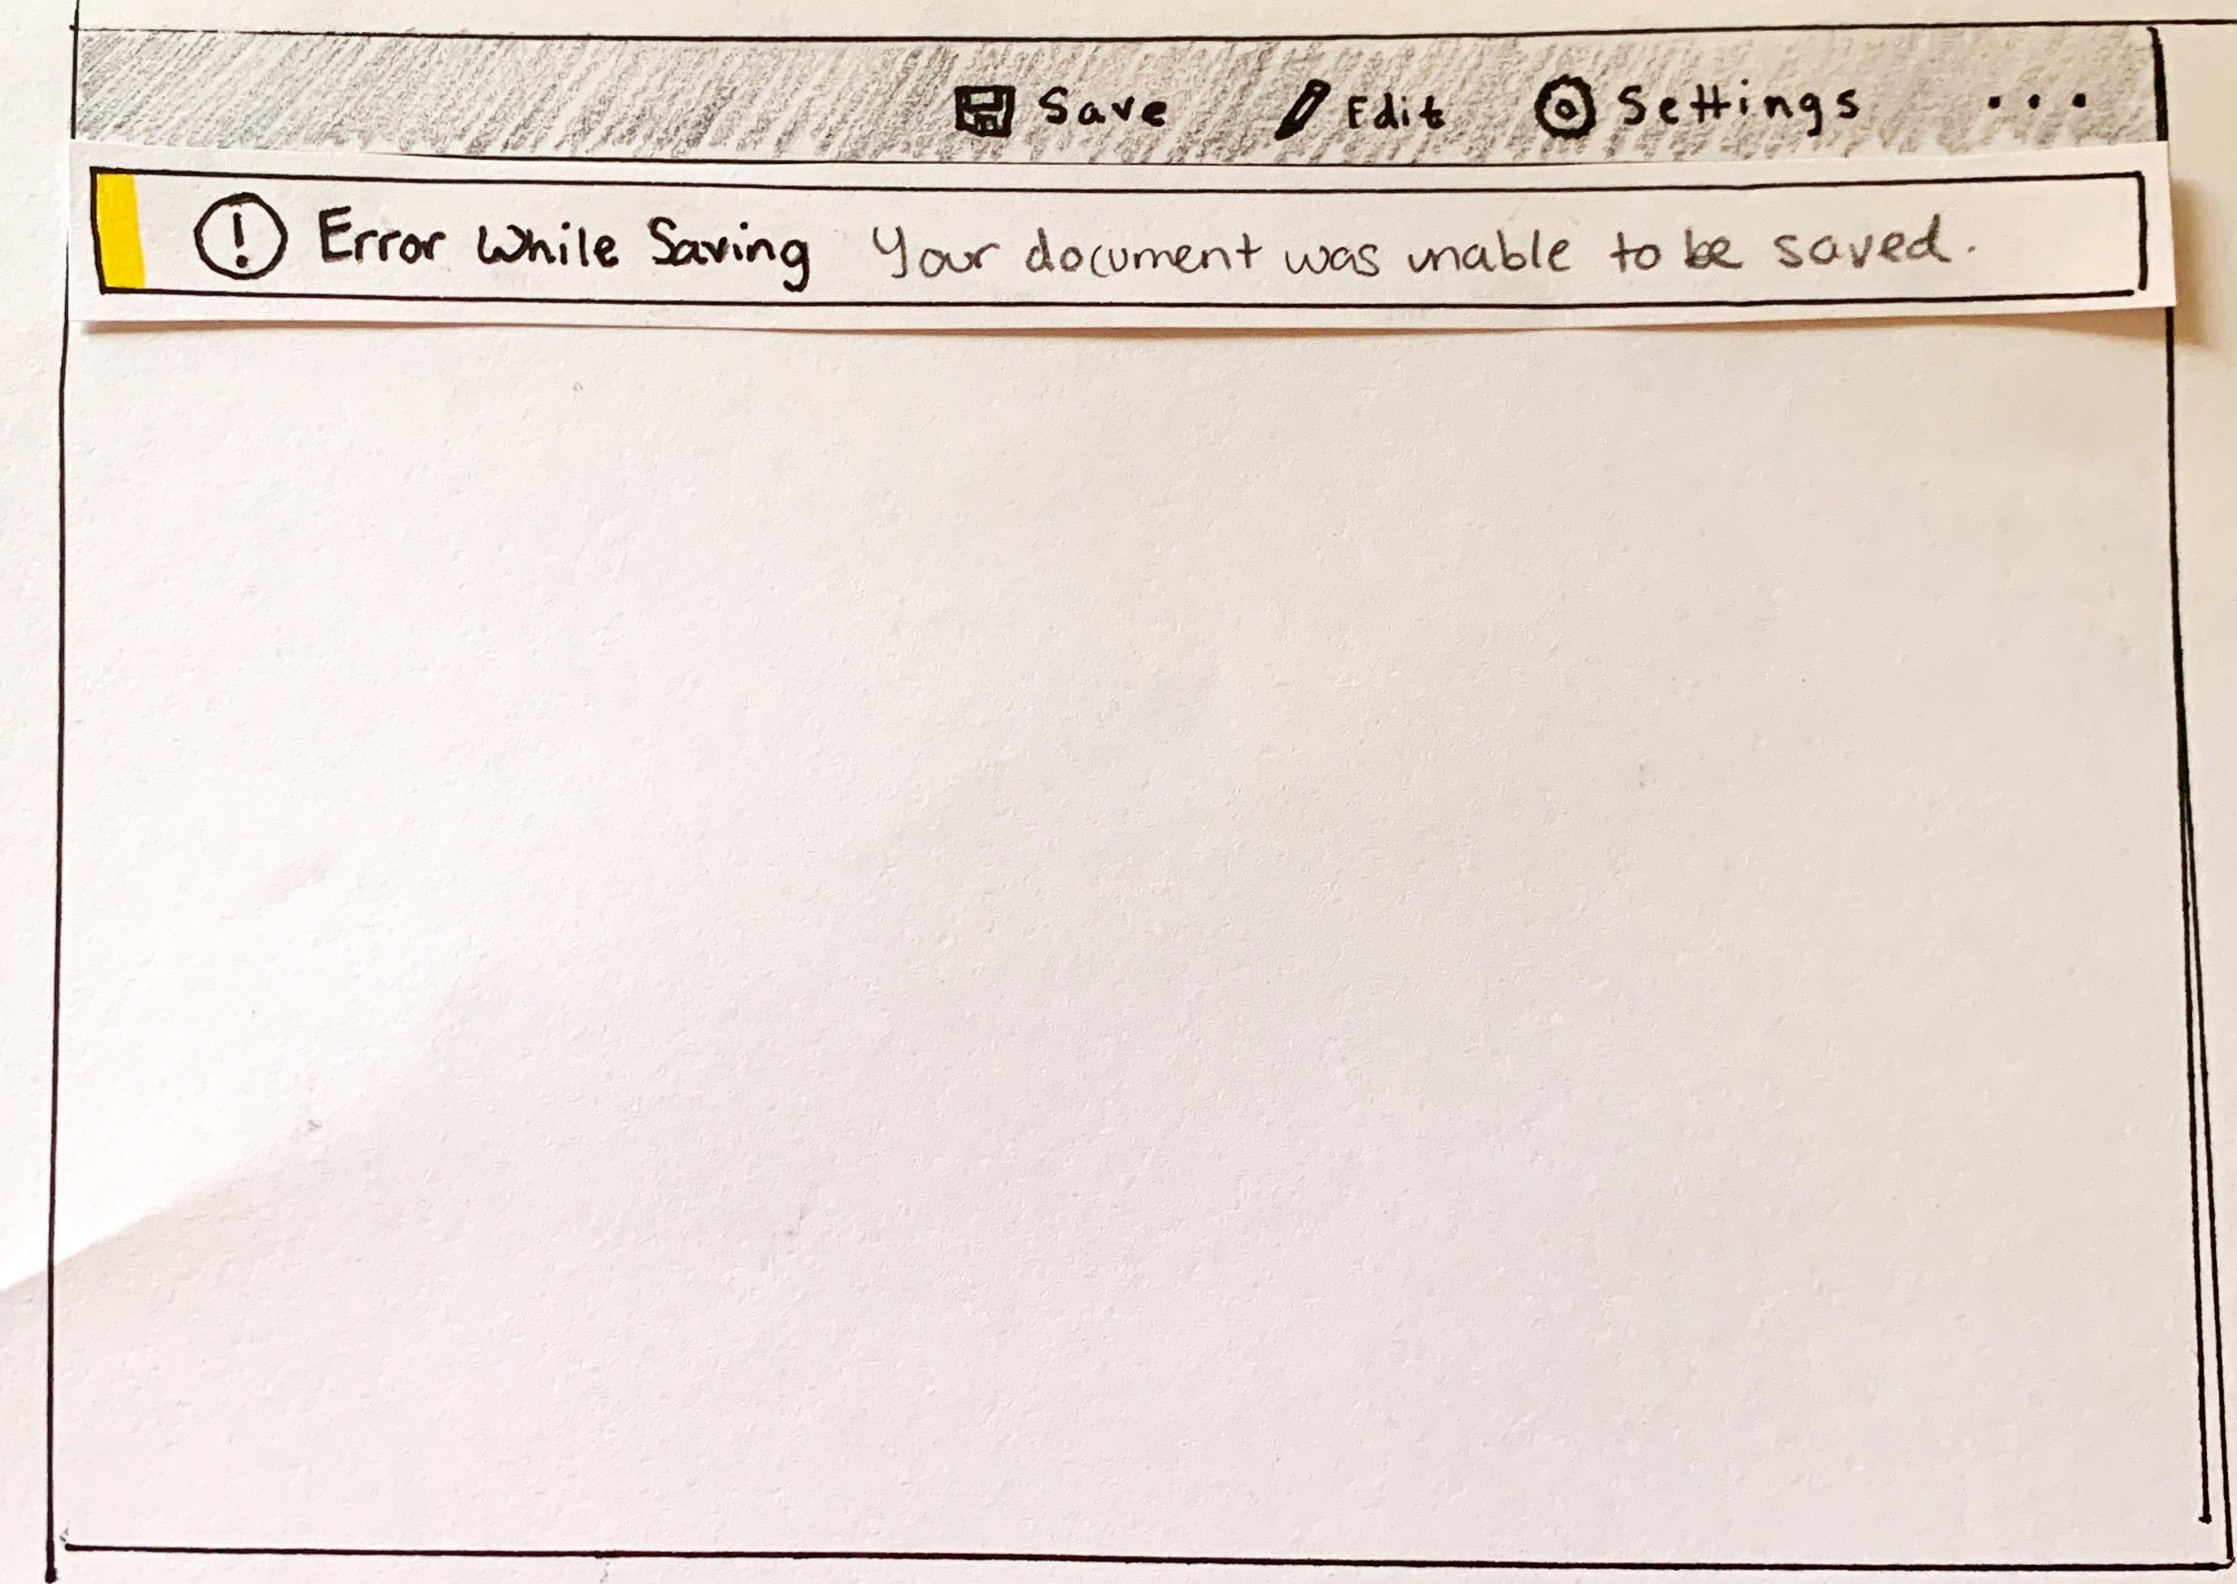 Save Edit Settings ...
! Error While Saving Your document was unable to be saved.